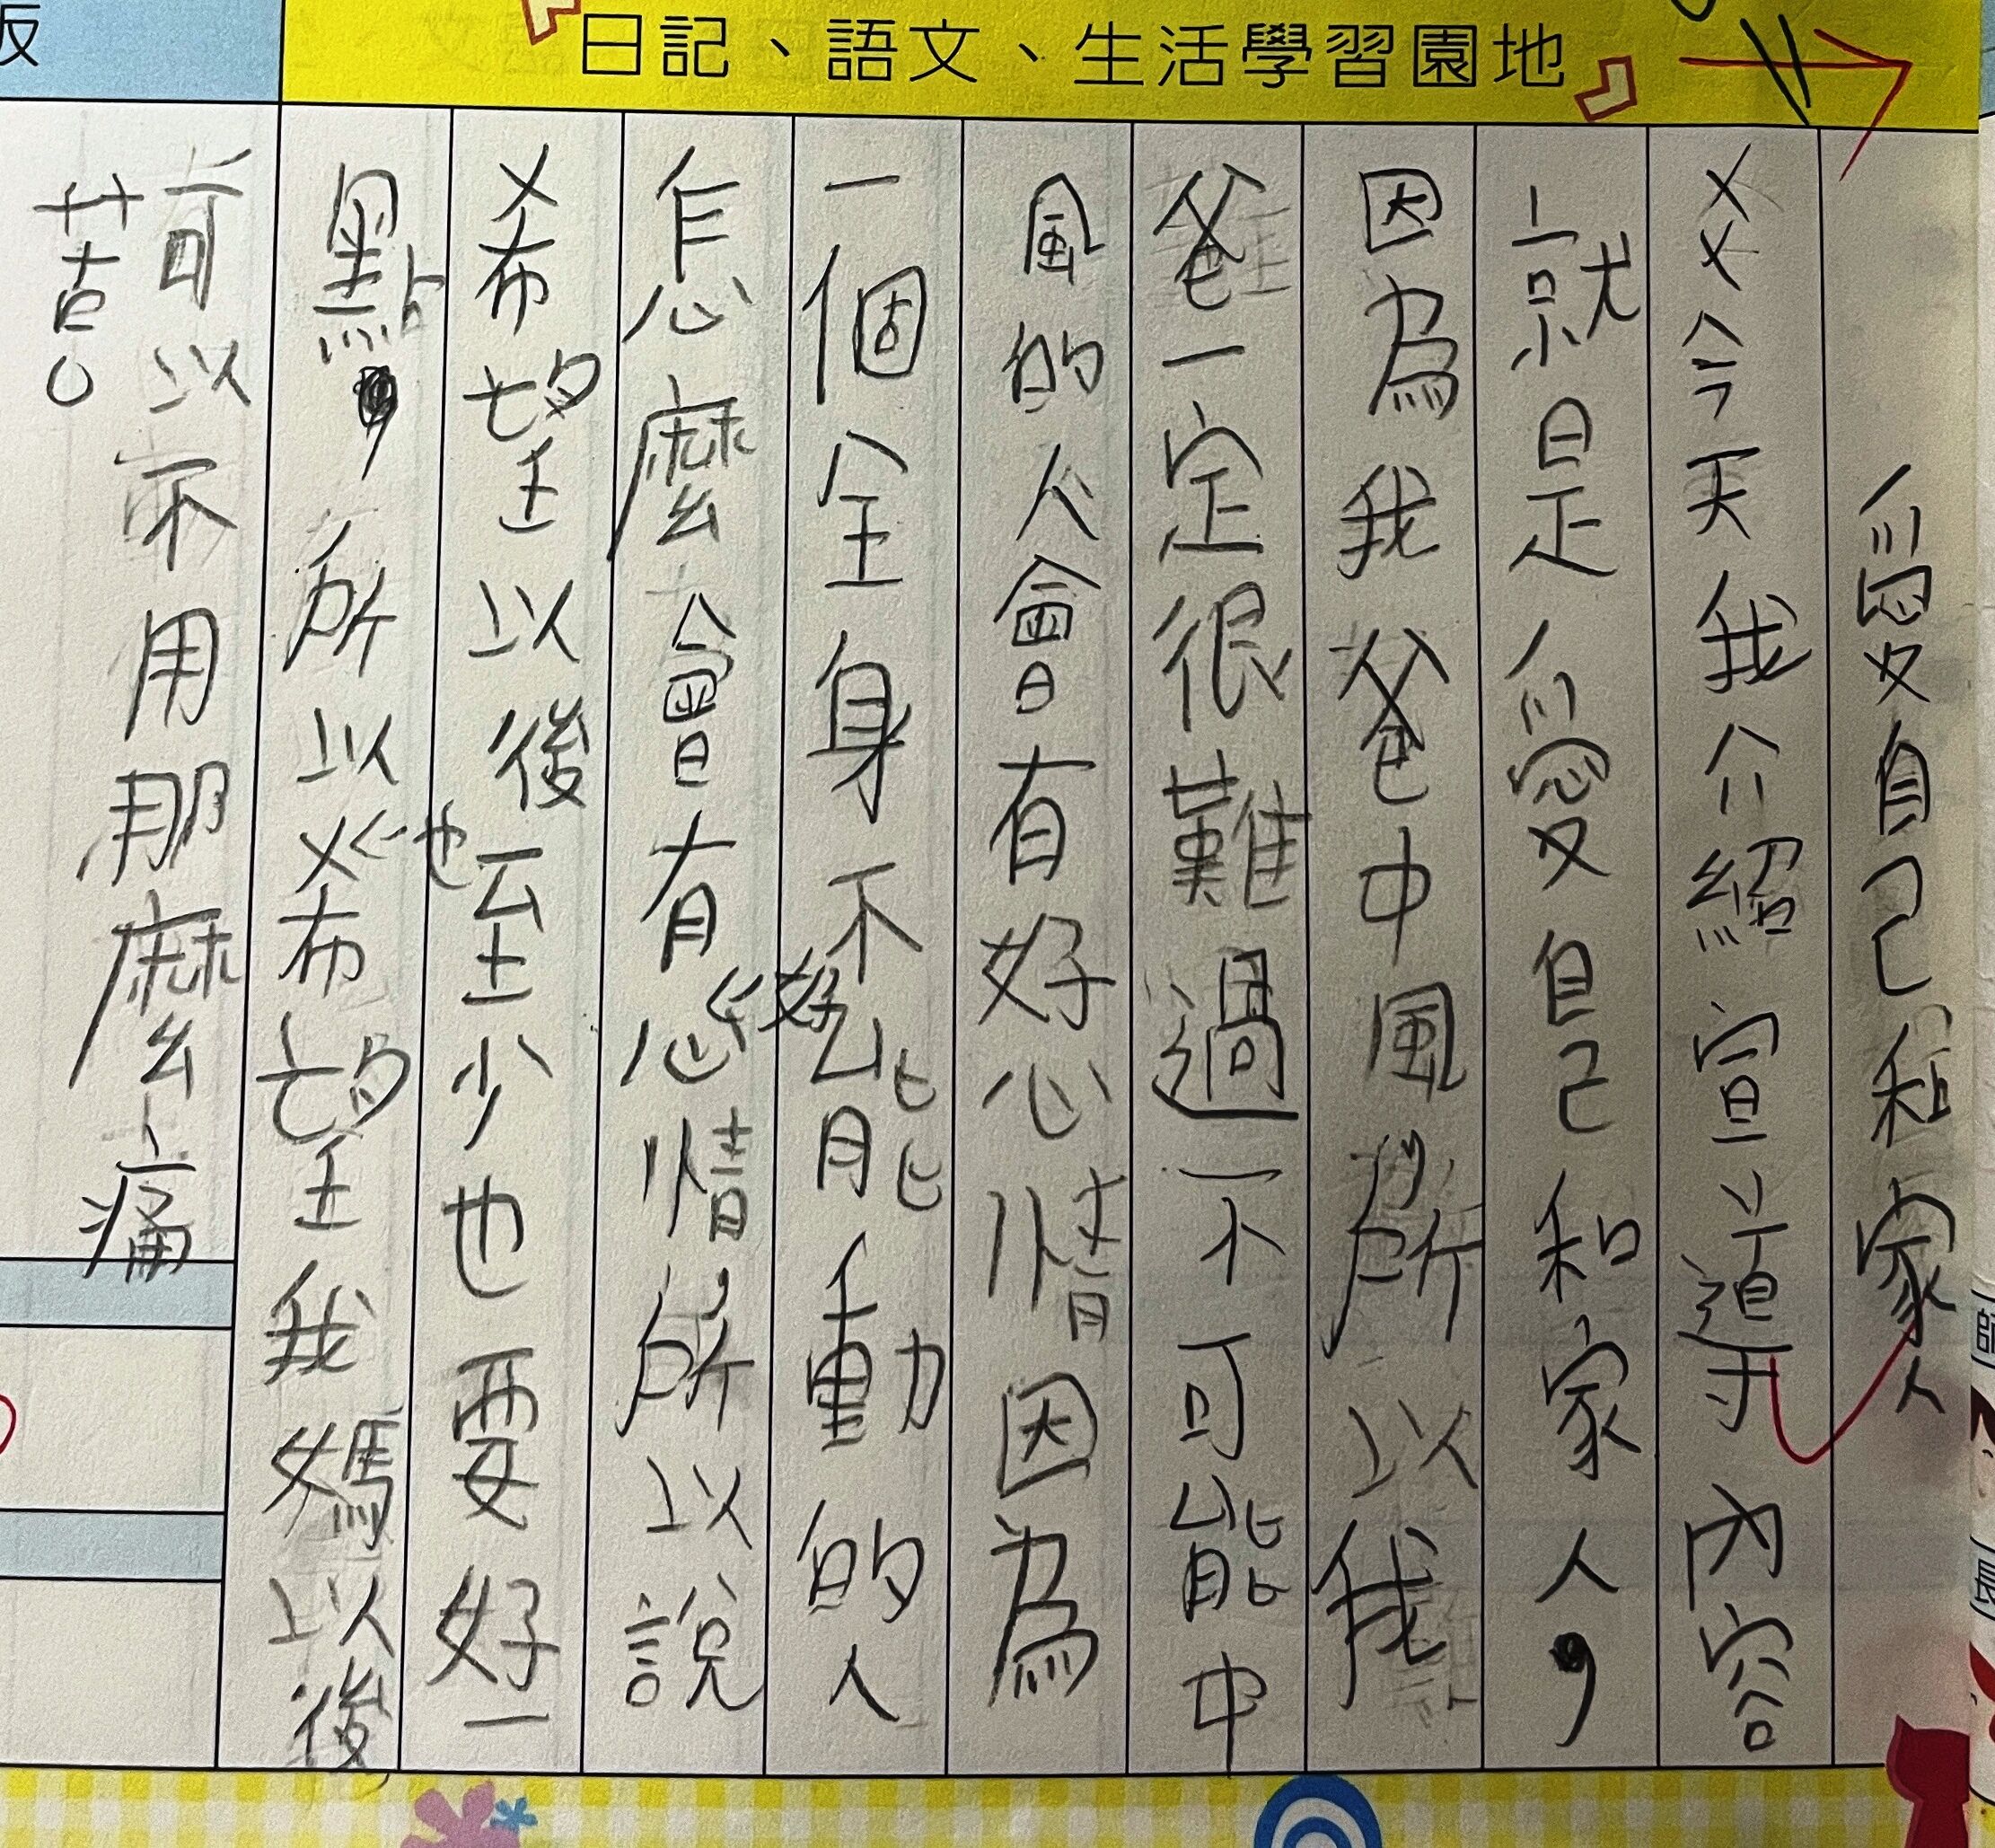 日記、語文、生活學習園地
愛自己和家人
ㄨㄨ今天我介紹宣導內容
就是愛自己和家人，
因為我爸中風所以我
爸一定很難過不可能中
風的人會有好心情因為
一個全身不能好動的人
怎麼會有心情所以說
ㄨ希望以後至少也要好一
點，所以ㄨ也希望我媽以後
可以不用那麼痛
苦。